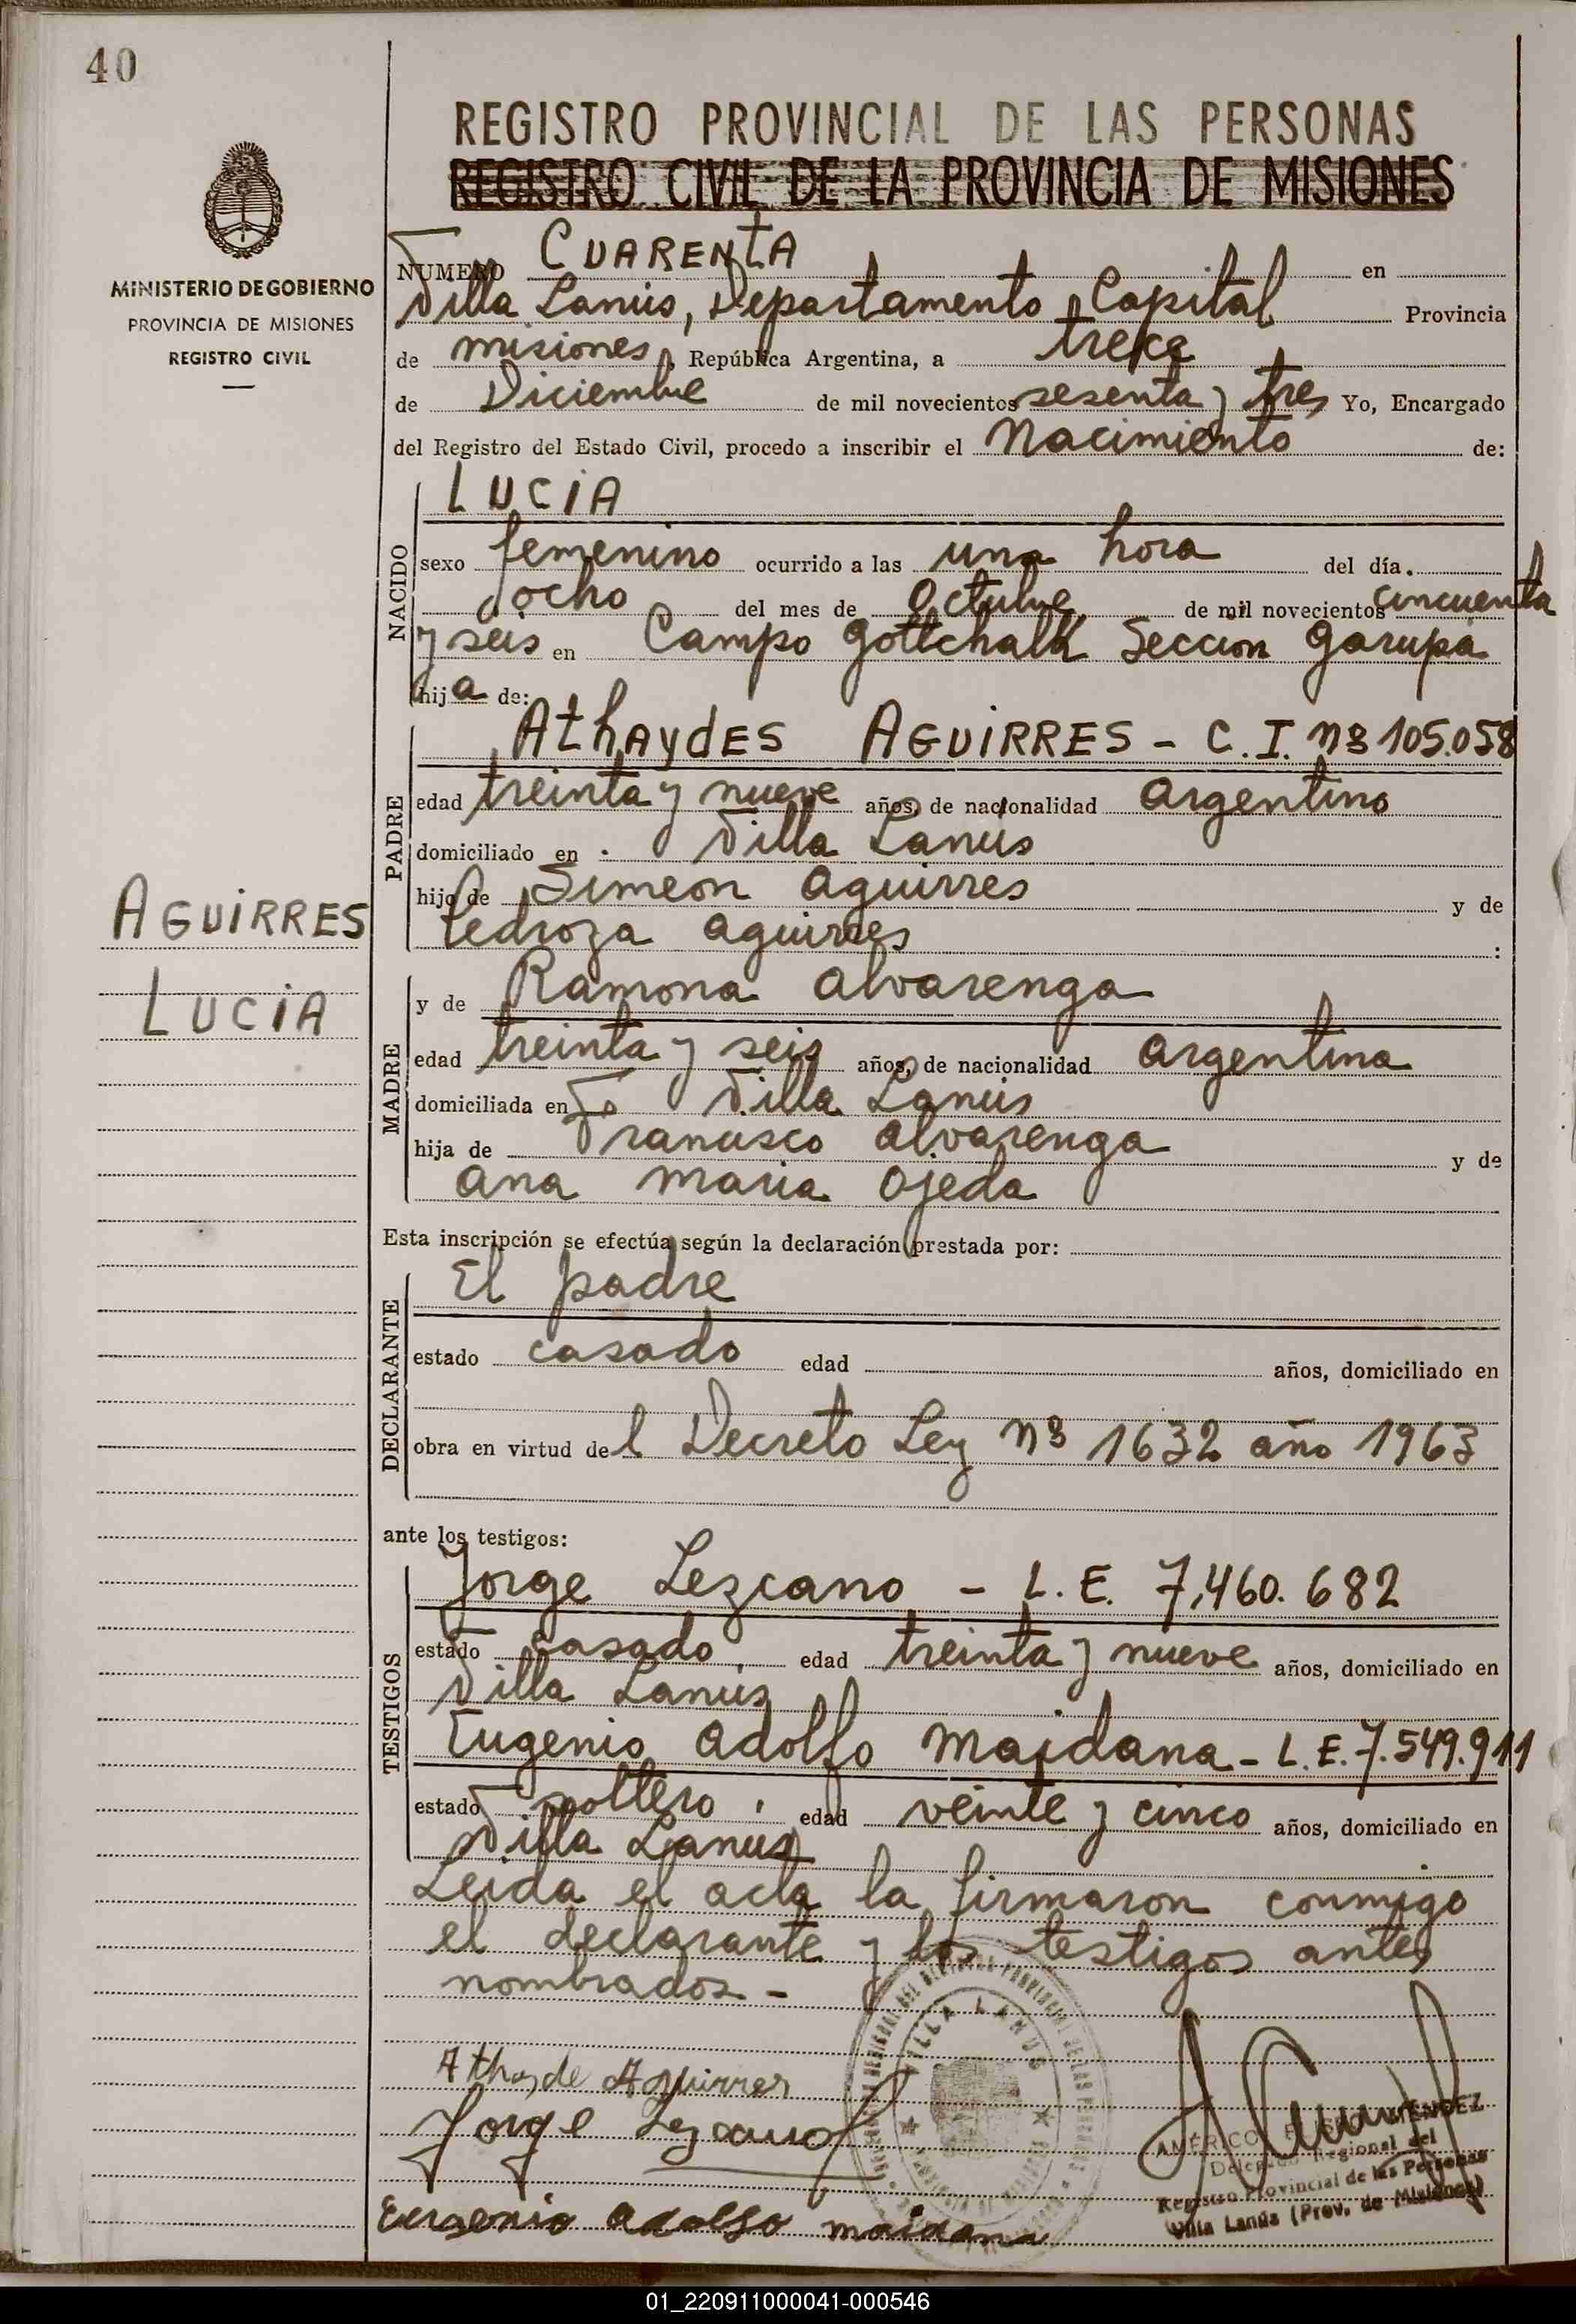 40
REGISTRO PROVINCIAL DE LAS PERSONAS
REGISTRO CIVIL DE LA PROVINCIA DE MISIONES
MINISTERIO DE GOBIERNO
PROVINCIA DE MISIONES
REGISTRO CIVIL
NUMERO CUARENTA en
Villa Lanús, Departamento Capital Provincia
de misiones, República Argentina, a trece
de Diciembre de mil novecientos sesenta y tres Yo, Encargado
del Registro del Estado Civil, procedo a inscribir el Nacimiento de:
NACIDO
LUCIA
sexo femenino ocurrido a las una hora del día
ocho del mes de Octubre de mil novecientos cincuenta
y seis en Campo Gottchalk Seccion Garupá
hija de:
PADRE
Athaydes AGUIRRES - C.I. Nº 105.058
edad treinta y nueve años, de nacionalidad argentino
domiciliado en Villa Lanús
hijo de Simeon Aguirres y de
Pedroza Aguirres
AGUIRRES
LUCIA
MADRE
y de Ramona Alvarenga
edad treinta y seis años, de nacionalidad argentina
domiciliada en Villa Lanús
hija de Francisco Alvarenga y de
Ana Maria Ojeda
Esta inscripción se efectúa según la declaración prestada por:
DECLARANTE
El padre
estado casado edad años, domiciliado en
obra en virtud del Decreto Ley Nº 1632 año 1963
ante los testigos:
TESTIGOS
Jorge Lezcano - L.E. 7.460.682
estado casado, edad treinta y nueve años, domiciliado en
Villa Lanús
Eugenio Adolfo Maidana - L.E. 7.549.911
estado soltero, edad veinte y cinco años, domiciliado en
Villa Lanus
Leida el acta la firmaron conmigo
el declarante y los testigos antes
nombrados.-
VILLA LANUS
Athayde Aguirres
Jorge Lezcano
AMÉRICO MÉNDEZ
Delegado Regional del
Registro Provincial de las Personas
Villa Lanús (Prov. de Misiones)
Eugenio Adolfo maidana
01_220911000041-000546